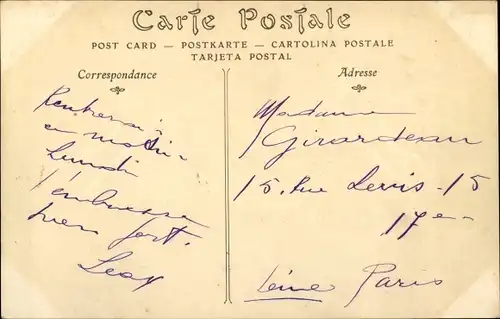 Carte Postale
POST CARD — POSTKARTE — CARTOLINA POSTALE
TARJETA POSTAL
Correspondance
Adresse
Rentrerai
ce matin
Lundi
t'embrasse
bien fort.
Madame
Girardeau
15. Rue Lévis - 15
17e
Paris